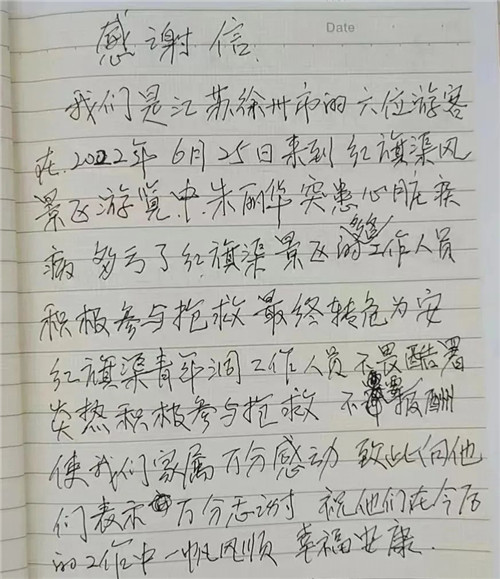 Date
感谢信.
我们是江苏徐州市的六位游客
在2022年6月25日来到红旗渠风
景区游览中.朱丽华突患心脏疾
病多亏了红旗渠景区的工作人员
积极参与抢救最终转危为安
红旗渠青年洞工作人员不畏酷署
炎热积极参与抢救 不畏报酬
使我们家属万分感动 致此向他
们表示万分志谢 祝他们在今后
的工作中一帆风顺 幸福安康.